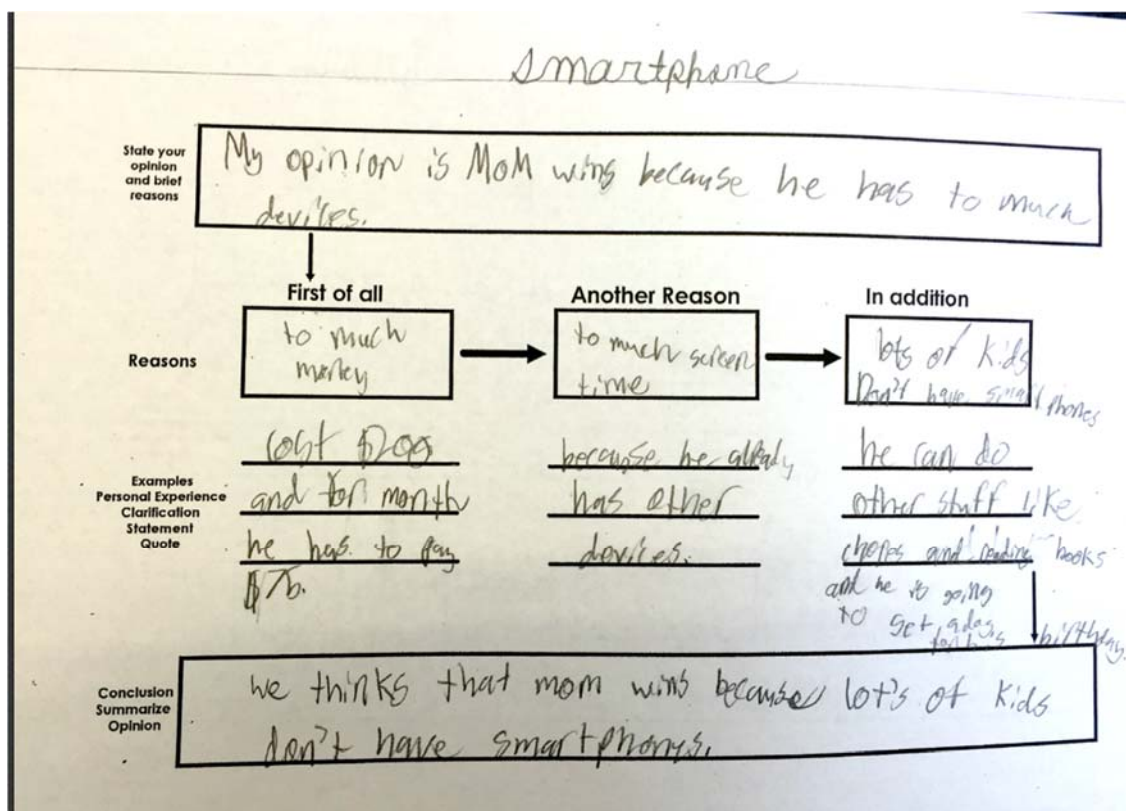 smartphone
State your
opinion
and brief
reasons
My opinion is MOM wins because he has to much
devices.
First of all
Another Reason
In addition
Reasons
to much
money
to much screen
time
lots of kids
Don't have smart phones
Examples
Personal Experience
Clarification
Statement
Quote
cost $200
and for month
he has to pay
$75.
because he already
has other
devices.
he can do
other stuff like
chores and reading books
and he is going
to get a dog
for his birthday.
Conclusion
Summarize
Opinion
We thinks that mom wins because lot's of kids
don't have smartphones.